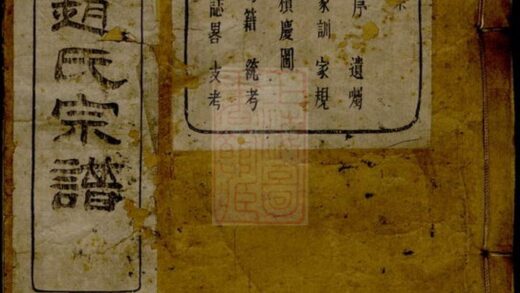 序 遺囑
家訓 家規
積慶圖
籍 統考
誌畧 支考
趙氏宗譜